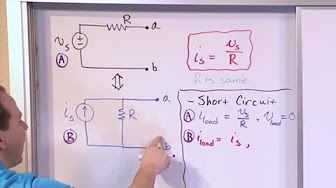 R
a
v_s
A
b
i_s = v_s/R
R is same.
a
i_s
R
B
b
- Short Circuit
A i_load = v_s/R , v_load = 0
B i_load = i_s ,